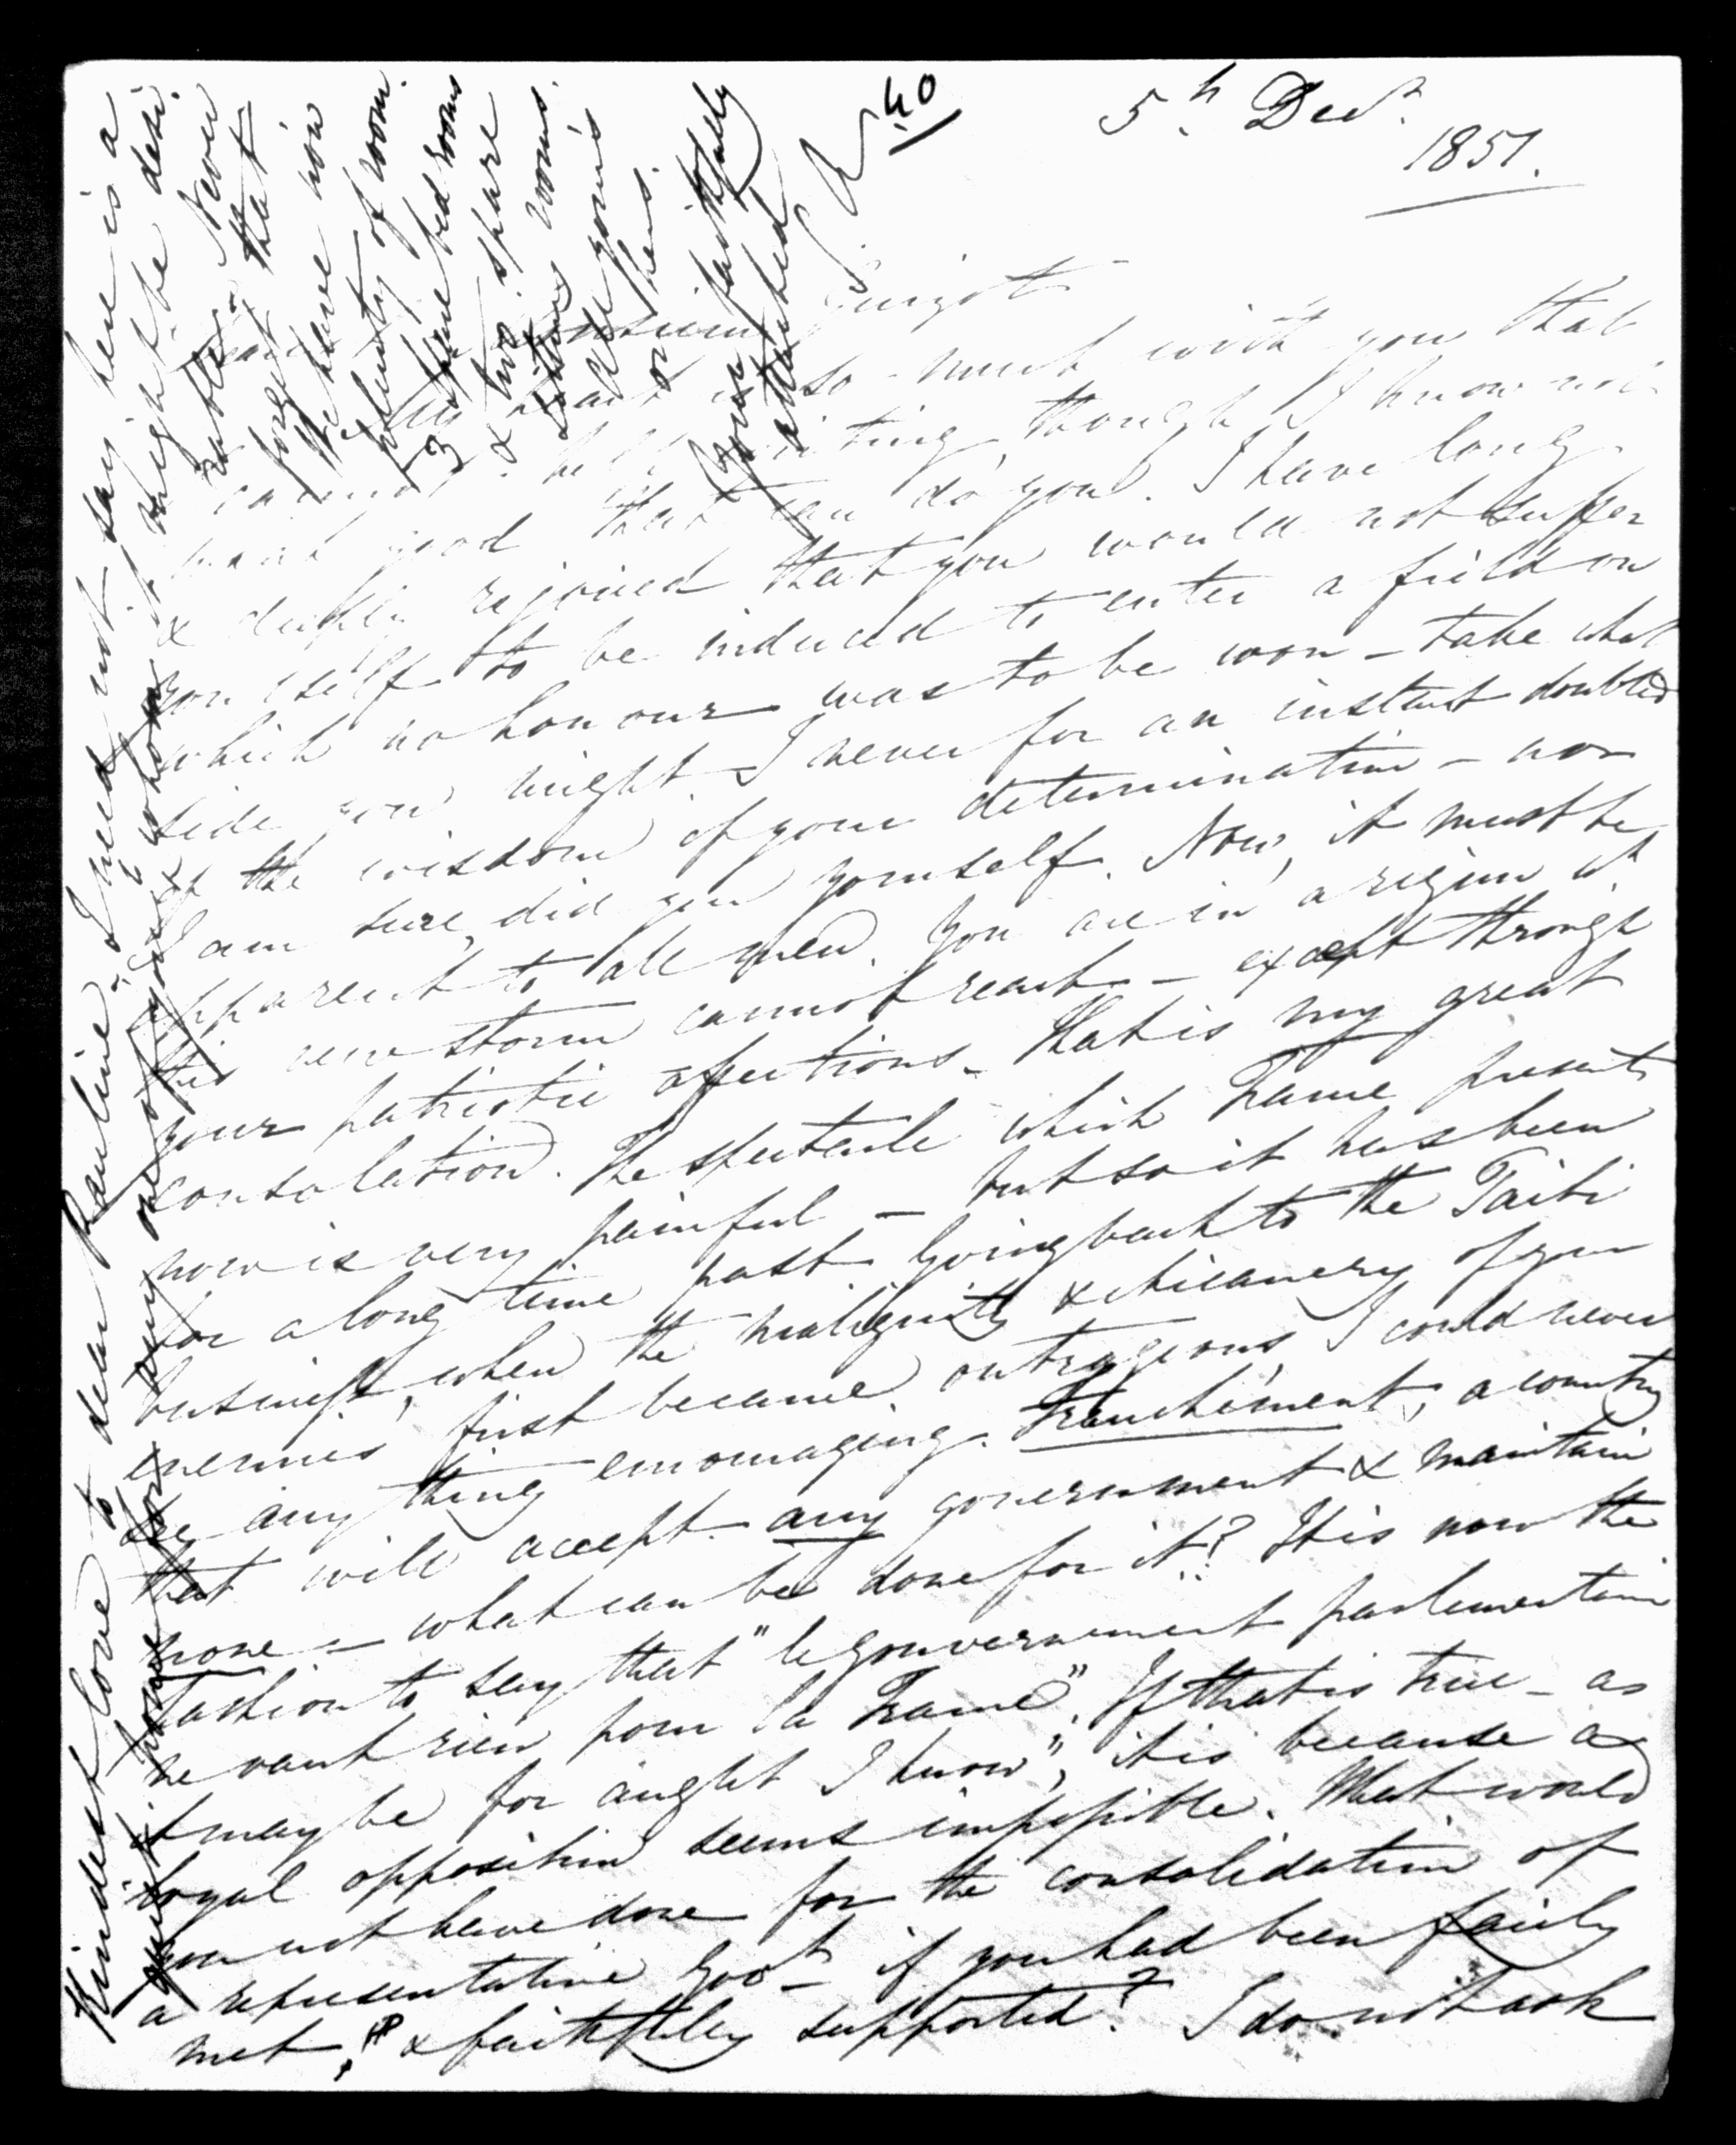 40
5th Decr.
1851.
Dear Monsieur Guizot
My heart is so much with you that
I cannot help writing, though I know not
what good that can do you. I have long
& deeply rejoiced that you would not suffer
yourself to be induced to enter a field on
which no honour was to be won – take what
side you might. I never for an instant doubted
of the wisdom of your determination – nor
I am sure, did you yourself. Now, it must be
apparent to all men. You are in a region wh.
this new storm cannot reach – except through
your patriotic affections. That is my great
consolation. The spectacle which France presents
now is very painful – but so it has been
for a long time past. Going back to the Taiti
business, when the malignity & chicanery of your
enemies first became outrageous I could never
see any thing encouraging. Franchement, a country
that will accept any government & maintain
none – what can be done for it? It is now the
fashion to say that "le gouvernement parlementaire
ne vaut rien pour la France". If that is true – as
it may be for aught I know, it is because a
loyal opposition seems impossible. What would
you not have done for the consolidation of
a representative Govt. if you had been fairly
met, & faithfully supported? I do not ask
Kindest love to dear Pauline. I need not say here is a
quiet home for any one of yours to whom it might be desi
rable. Never
forget that
We have now
plenty of room.
3 spare bed rooms
& two spare
sitting rooms.
all yours
or theirs.
Yours faithfully
attached